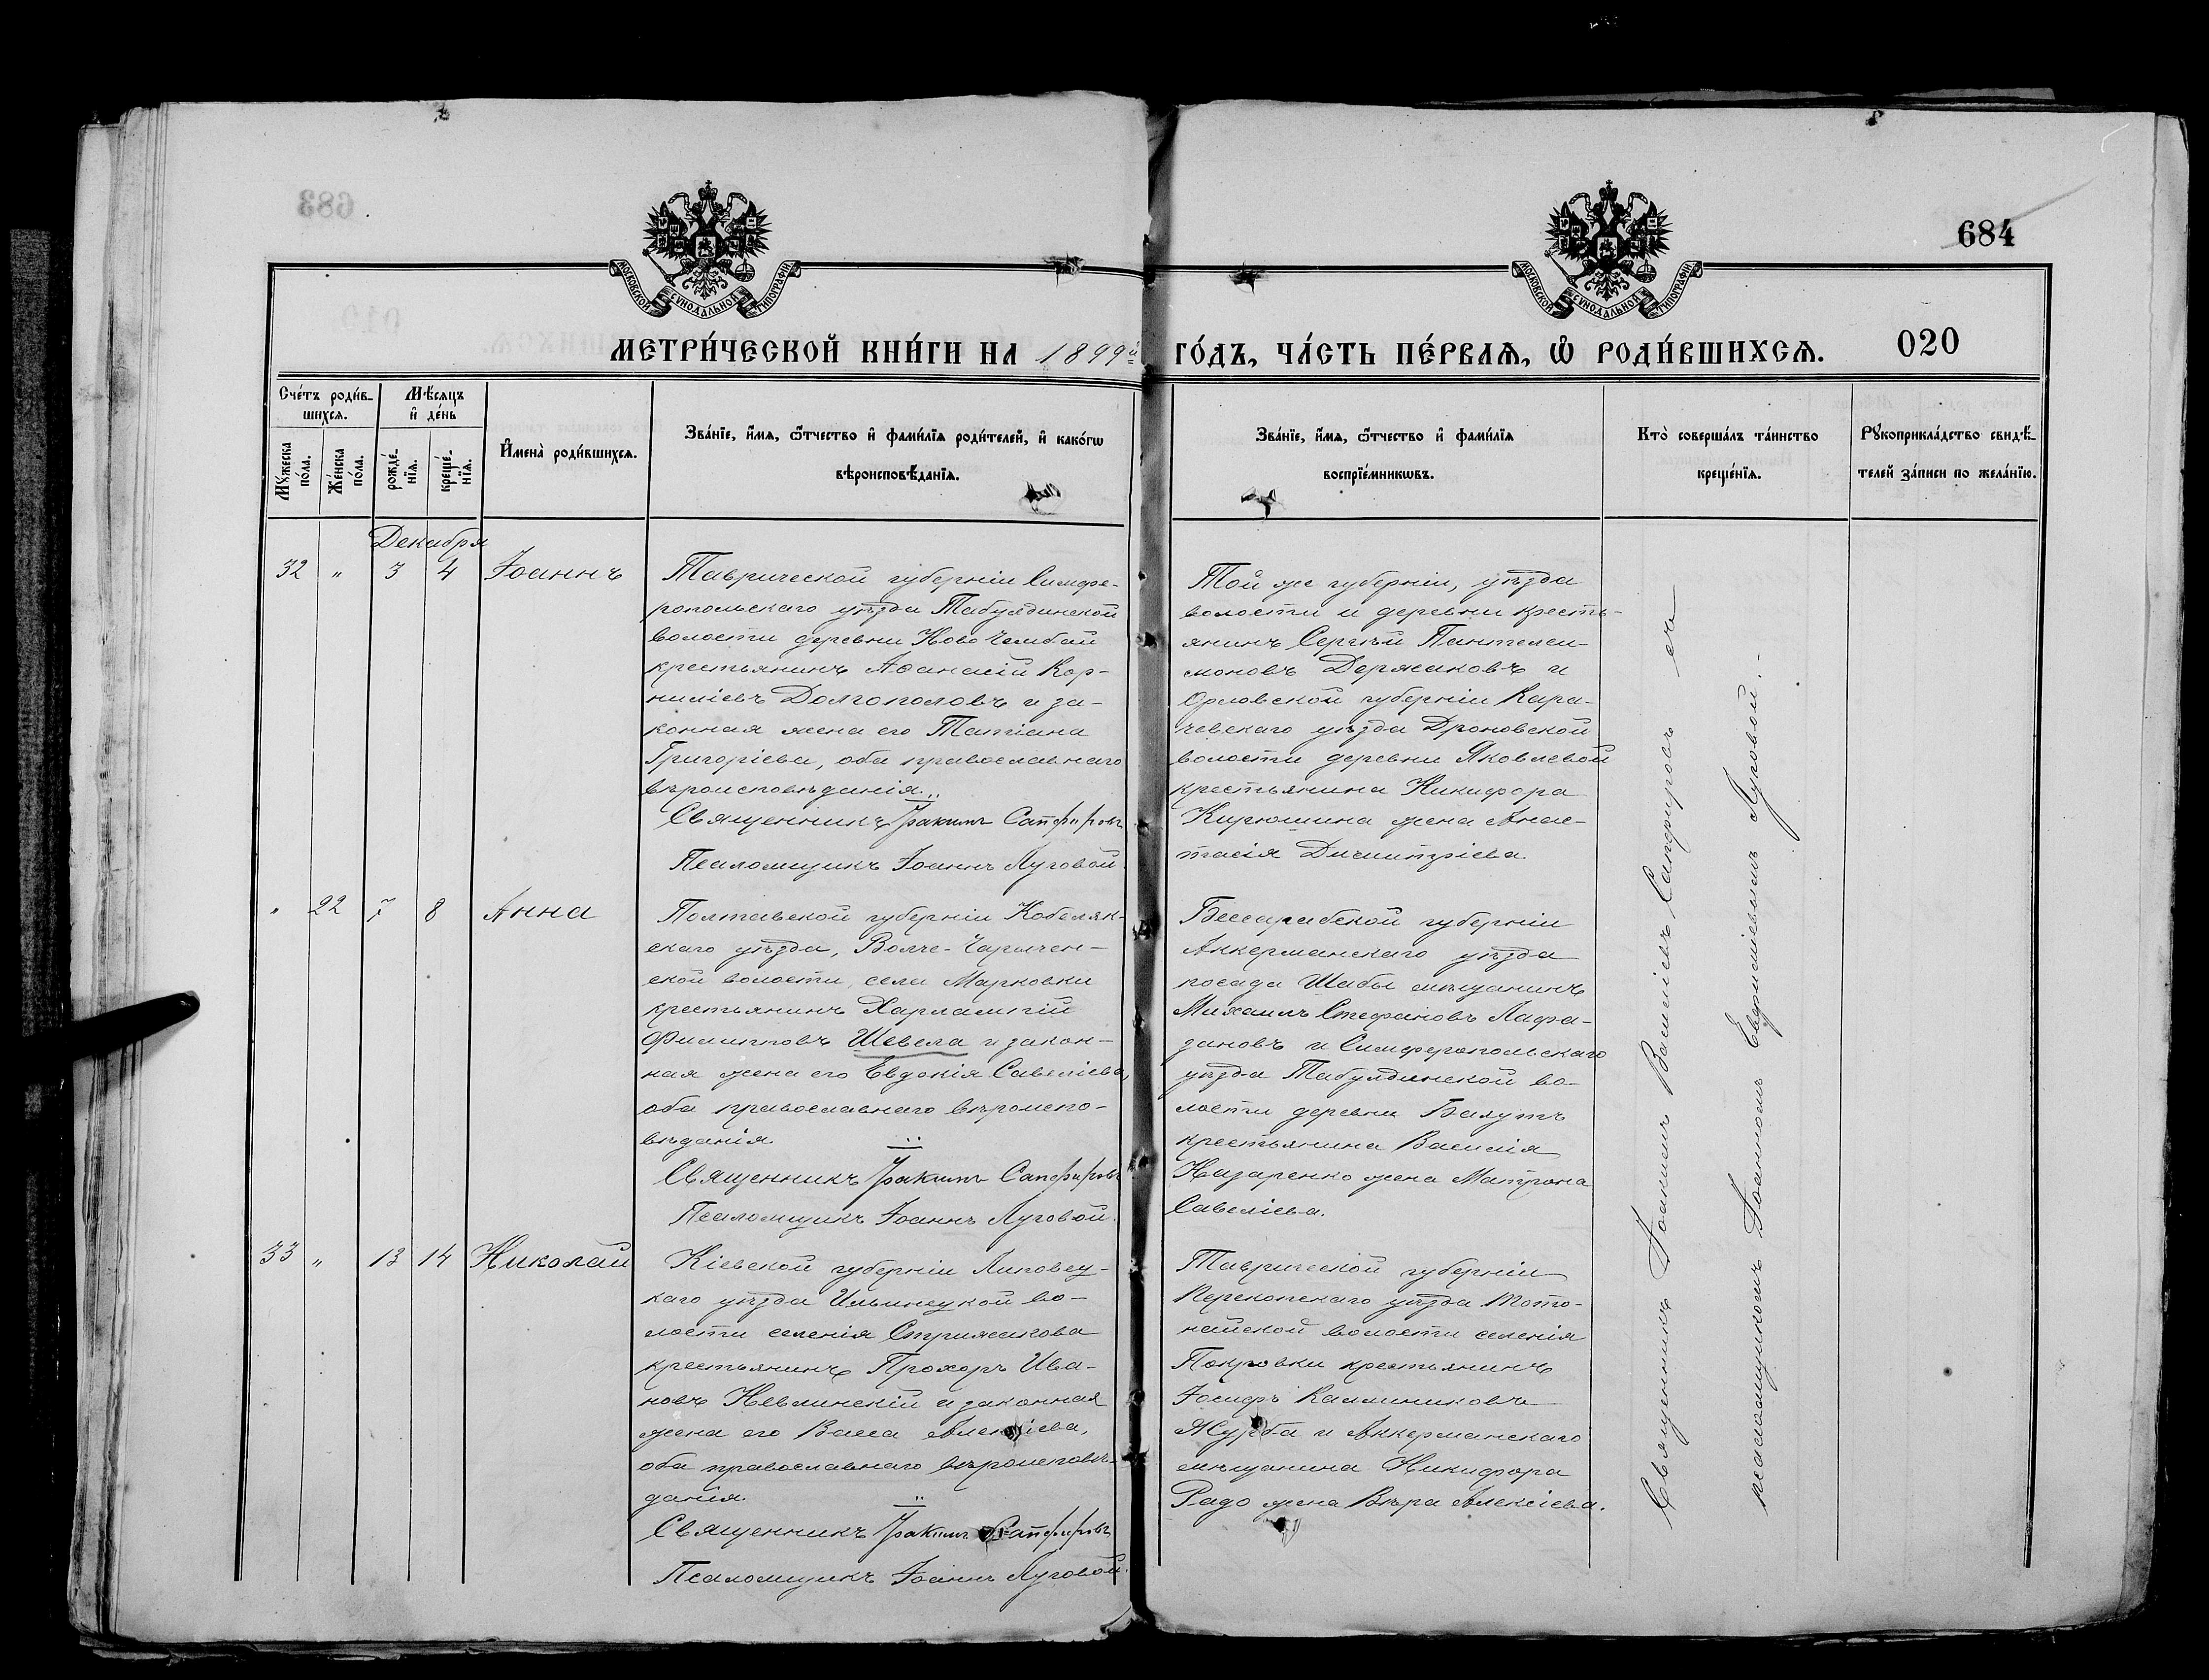 684
МОСКОВСКОЙ СУНОДАЛЬНОЙ ТИПОГРАФІИ
МОСКОВСКОЙ СУНОДАЛЬНОЙ ТИПОГРАФІИ
МЕТРИ́ЧЕСКОЙ КНИ́ГИ НА 1899й ГО́ДЪ, ЧА́СТЬ ПЕ́РВАѦ, Ѡ РОДИ́ВШИХСѦ. 020
Сче́тъ роди́в-
шихсѧ.
Мѣ́сѧцъ
и҆ де́нь
Мꙋ́жеска
по́ла.
Же́нска
по́ла.
рожде́-
нїѧ.
креще́-
нїѧ.
И҆мена̀ роди́вшихсѧ.
Зва́нїе, и҆́мѧ, ѻ҆́тчество и҆ фами́лїѧ роди́телей, и҆ како́гѡ
вѣроисповѣ́данїѧ.
Зва́нїе, и҆́мѧ, ѻ҆́тчество и҆ фами́лїѧ
воспрїе́мникѡвъ.
Кто̀ соверша́лъ та́инство
креще́нїѧ.
Рꙋкоприкла́дство свидѣ́-
телей за́писи по жела́нїю.
Декабря
32 " 3 4 Іоаннъ
Таврической губерніи Симфе-
ропольскаго уѣзда Табулдинской
волости деревни Ново Чембай
крестьянинъ Аѳанасій Кор-
ниліевъ Долгополовъ и за-
конная жена его Татіана
Григоріева, оба православнаго
вѣроисповѣданія.
Священникъ Іоакимъ Сапфировъ
Псаломщикъ Іоаннъ Луговой.
Той же губерніи, уѣзда
волости и деревни кресть-
янинъ Сергѣй Пантелеи-
моновъ Держаковъ и
Орловской губерніи Кара-
чевскаго уѣзда Дроновской
волости деревни Яковлевой
крестьянина Никифора
Кирюшина жена Анас-
тасія Димитріева.
" 22 7 8 Анна
Полтавской губерніи Кобеляк-
скаго уѣзда, Волче-
ской волости, села Марковки
крестьянинъ Харлампій
Филипповъ Шевела и закон-
ная жена его Евдокія Савеліева,
оба православнаго вѣроиспо-
вѣданія.
Священникъ Іоакимъ Сапфировъ
Псаломщикъ Іоаннъ Луговой.
Бессарабской губерніи
Аккерманскаго уѣзда
посада Шабы мѣщанинъ
Михаилъ Стефановъ Лафа-
зановъ и Симферопольскаго
уѣзда Табулдинской во-
лости деревни
крестьянина Василія
Назаренко жена Матрона
Савеліева.
33 " 13 14 Николай
Кіевской губерніи Липовец-
каго уѣзда Ильинецкой во-
лости селенія Стрижакова
крестьянинъ Прохоръ Ива-
новъ Невлинскій и законная
жена его Васса Алексіева,
оба православнаго вѣроисповѣ-
данія.
Священникъ Іоакимъ Сапфировъ
Псаломщикъ Іоаннъ Луговой.
Таврической губерніи
Перекопскаго уѣзда Тото-
найской волости селенія
Покровки крестьянинъ
Іосифъ Каллиниковъ
Журба и Аккерманскаго
мѣщанина Никифора
Радо жена Вѣра Алексіева.
Священникъ Іоакимъ Василіевъ Сапфировъ съ
псаломщикомъ Іоанномъ Евфиміевымъ Луговой.